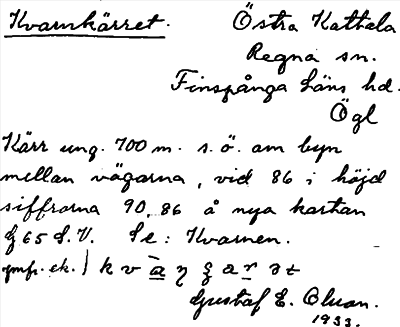 Kvarnkärret. Östra Kattala
Regna sn.
Finspånga läns hd.
Ögl
Kärr ung. 700 m. s.ö. om byn
mellan vägarna, vid 86 i höjd
siffrorna 90,86 å nya kartan
f 65 S.V. Se: Kvarnen.
Gustaf E. Olson.
1933.